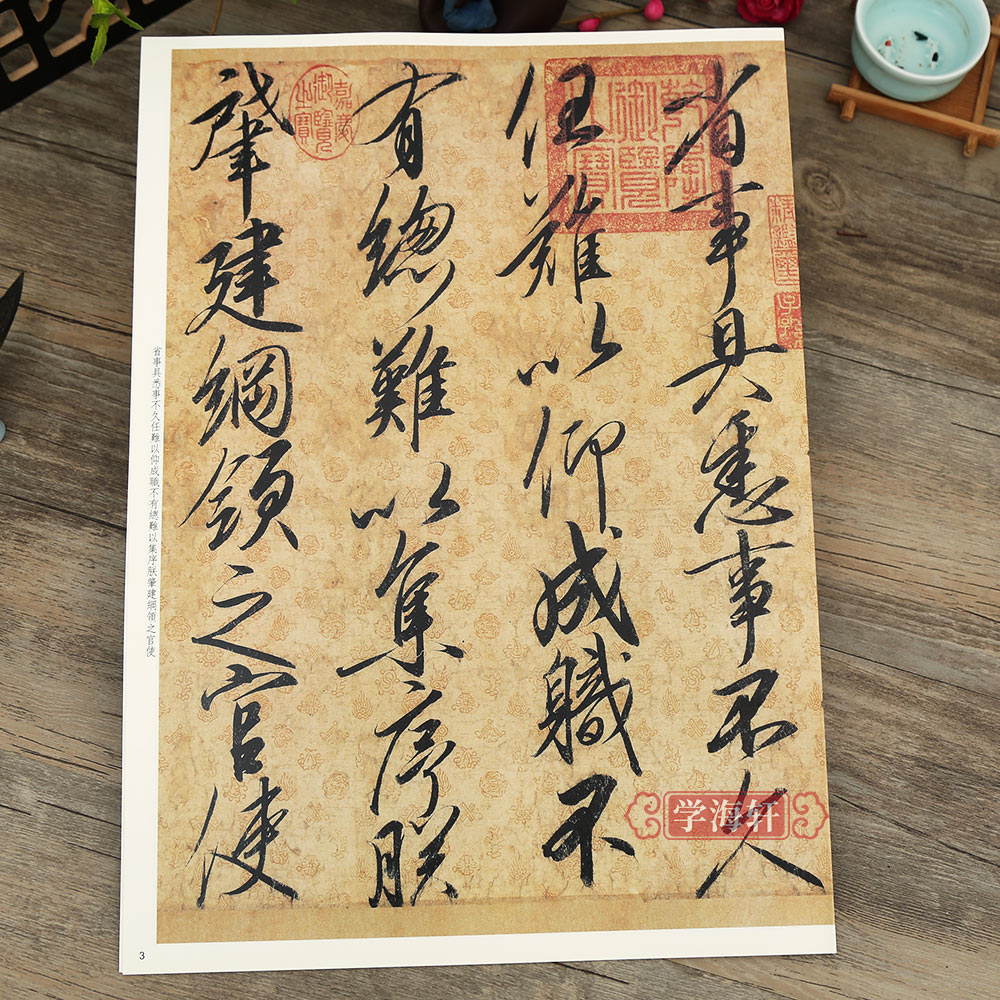 省事具悉事不久
任難以仰成職不
有總難以集序朕
肇建綱領之官使
乾隆御覽之寶
嘉慶御覽之寶
省事具悉事不久任難以仰成職不有總難以集序朕肇建綱領之官使
学海轩
3